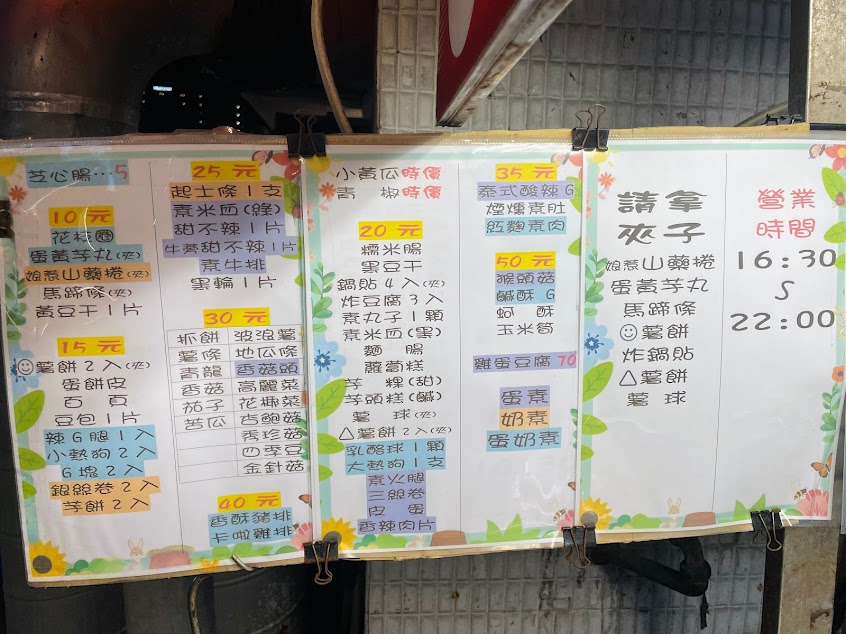 芝心腸…5
10 元
花枝圈
蛋黃芋丸(夾)
娘惹山藥捲(夾)
馬蹄條(夾)
黃豆干1片
15 元
☺薯餅2入(夾)
蛋餅皮
百頁
豆包1片
辣G腿1入
小熱狗2入
G塊2入
銀絲卷2入
芋餅2入
25 元
起士條1支
素米血(綠)
甜不辣1片
牛蒡甜不辣1片
素牛排
黑輪1片
30 元
抓餅 波浪薯
薯條 地瓜條
青龍 香菇頭
香菇 高麗菜
茄子 花椰菜
苦瓜 杏鮑菇
秀珍菇
四季豆
金針菇
40 元
香酥豬排
卡啦雞排
小黃瓜時價
青椒時價
20 元
糯米腸
黑豆干
鍋貼4入(夾)
炸豆腐3入
素丸子1顆
素米血(黑)
麵腸
蘿蔔糕
芋粿(甜)
芋頭糕(鹹)
薯球(夾)
△薯餅2入(夾)
乳酪球1顆
大熱狗1支
素火腿
三絲卷
皮蛋
香辣肉片
35 元
泰式酸辣G
煙燻素肚
紅麴素肉
50 元
猴頭菇
鹹酥G
蚵酥
玉米筍
雞蛋豆腐70
蛋素
奶素
蛋奶素
請拿
夾子
娘惹山藥捲
蛋黃芋丸
馬蹄條
☺薯餅
炸鍋貼
△薯餅
薯球
營業
時間
16:30
∫
22:00